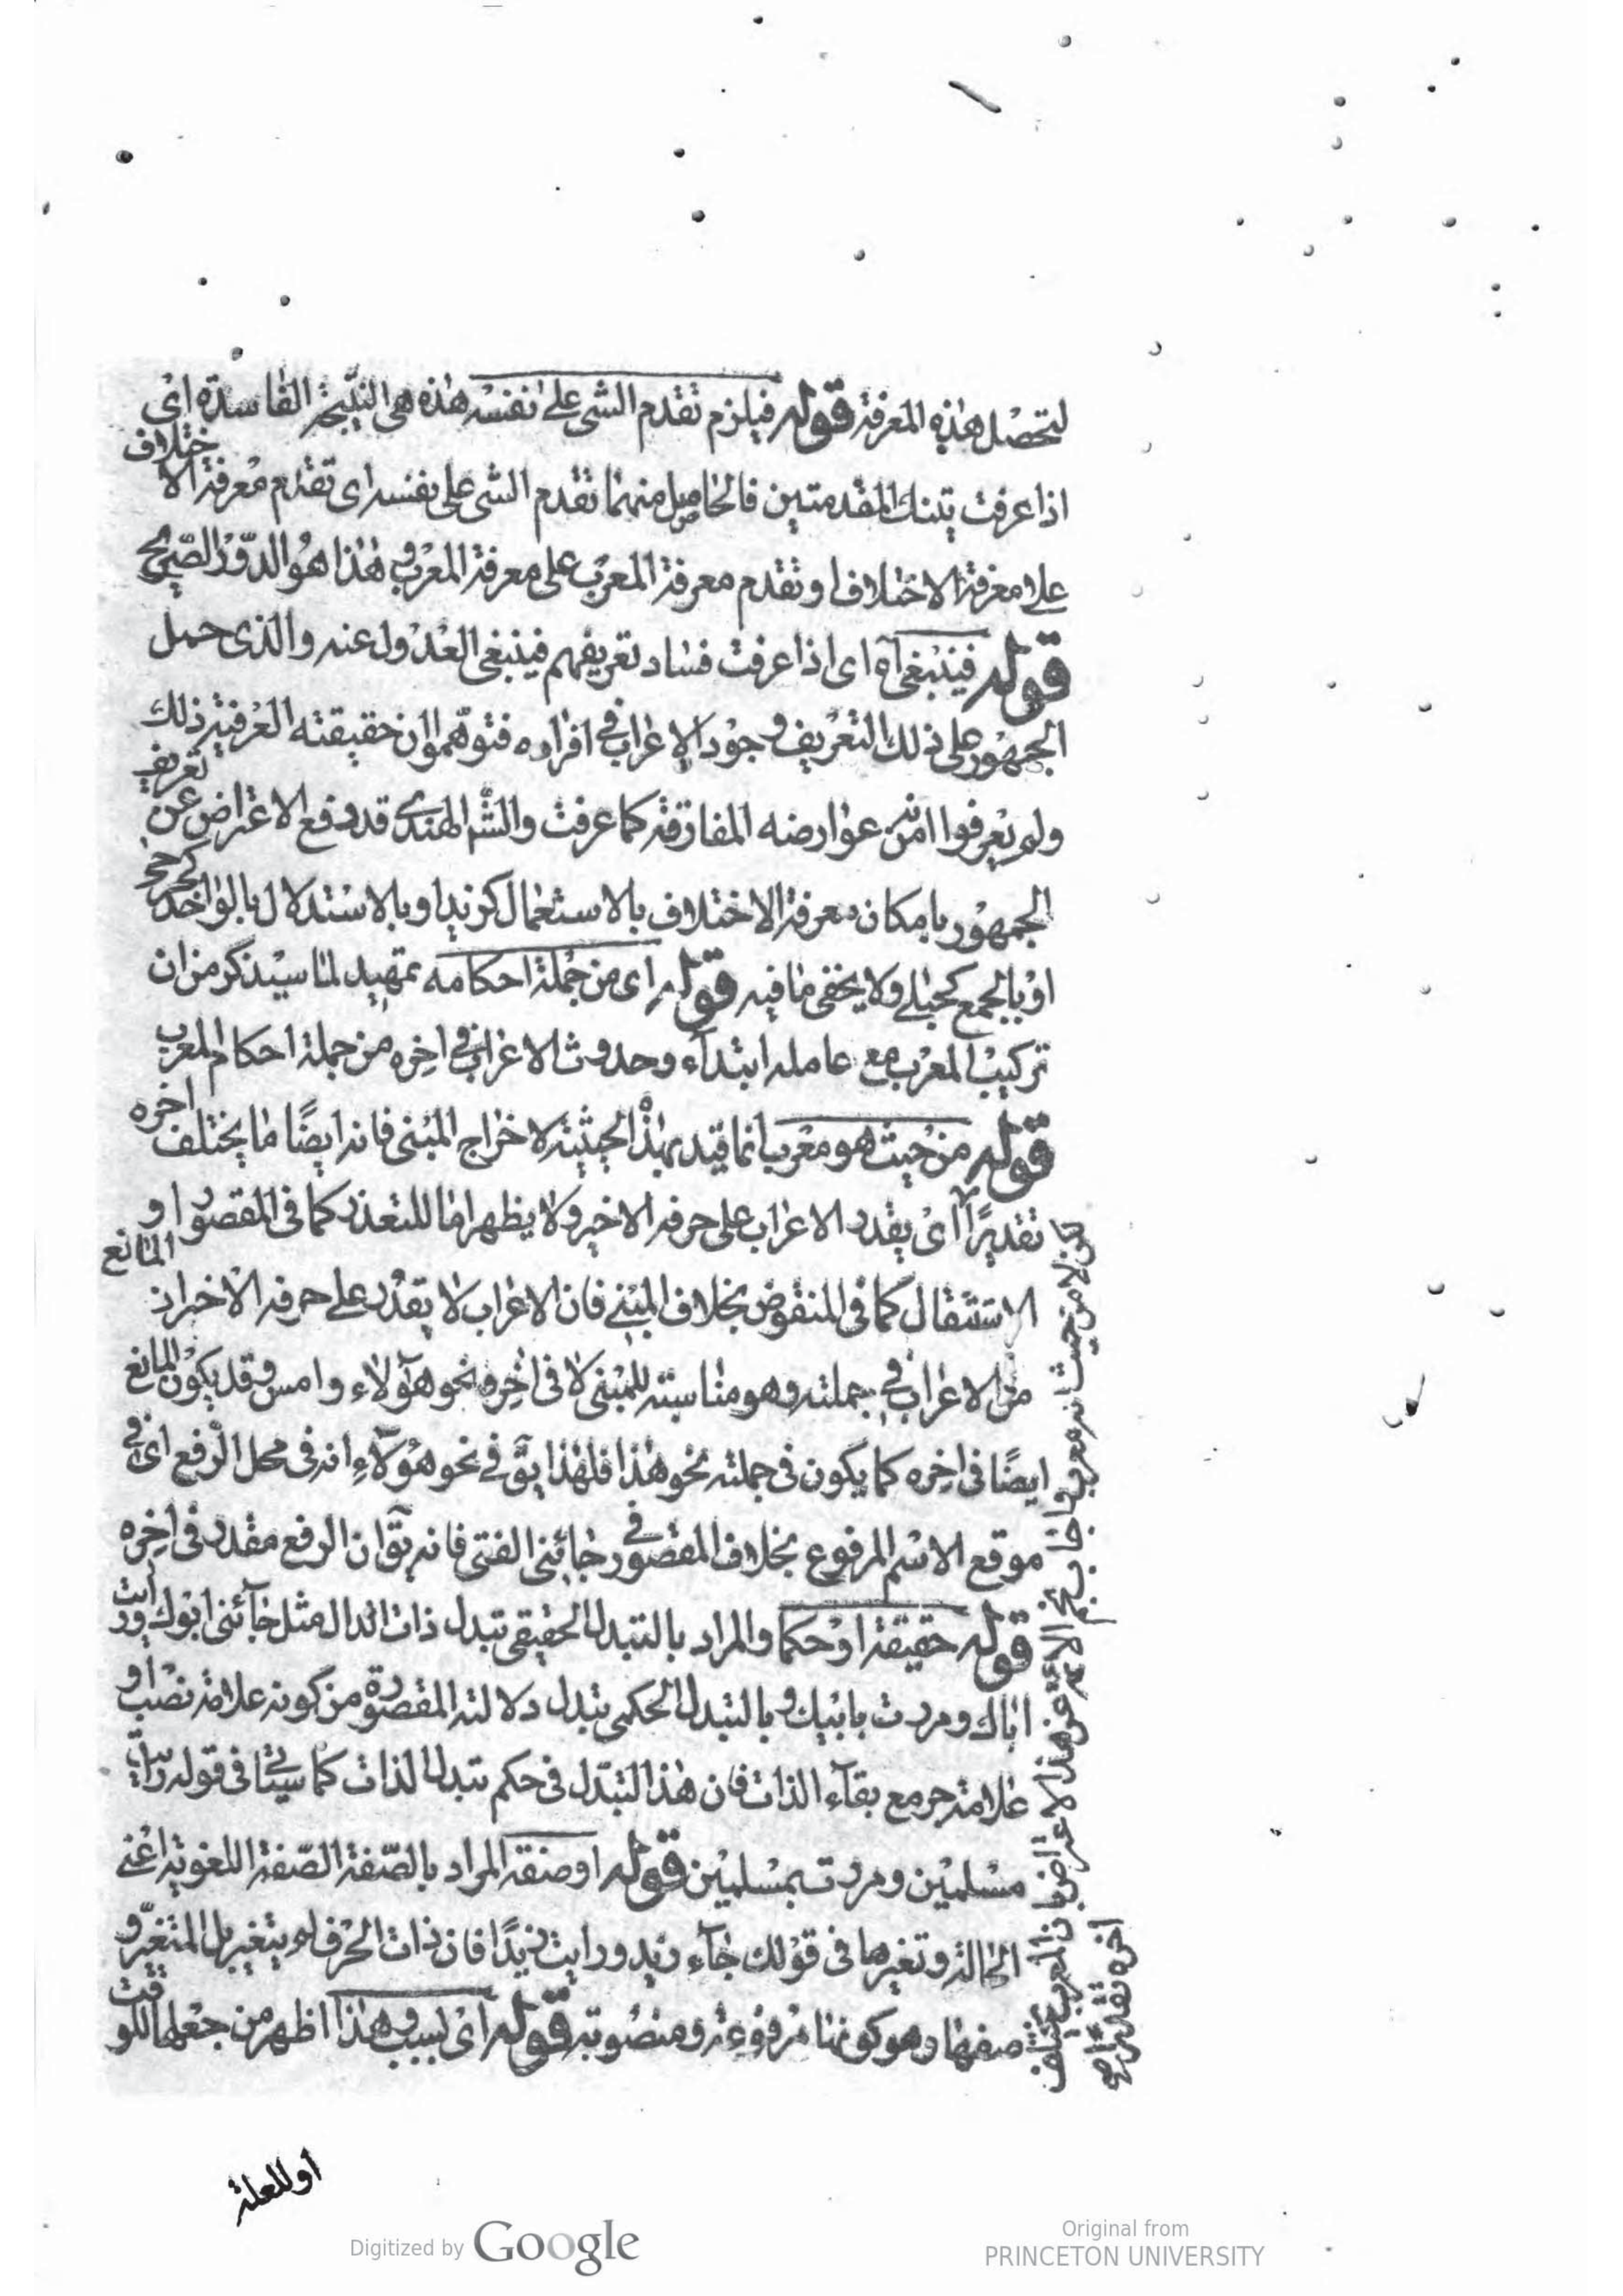 لتحصل هذه المعرفة قوله فيلزم تقدم الشى على نفسه هذه هى النتيجة الفاسدة اى
اذا عرفت تينك المقدمتين فالحاصل منهما تقدم الشى على نفسه اى تقدم معرفة الاختلاف
على معرفة الاختلاف او تقدم معرفة المعرب على معرفة المعرب و هذا هو الدور الصريح
قوله فينبغى آه اى اذا عرفت فساد تعريفهم فينبغى العدول عنه والذى حمل
الجمهور على ذلك التعريف وجود الاعراب فى افراده فتوهموا ان حقيقته العرفية ذلك
ولم يعرفوا انه من عوارضه المفارقة كما عرفت والشم الهندى قد دفع الاعتراض عن تعريف
الجمهور بامكان معرفة الاختلاف بالاستعمال كزيد او بالاستدلال بالواحد كحجر
او بالجمع كحبلى ولا يخفى ما فيه قوله اى من جملة احكامه تمهيد لما سيذكر من ان
تركيب المعرب مع عامله ابتداء وحدوث الاعراب فى اخره من جملة احكام المعرب
قوله من حيث هو معرب انما قيد بهذه الحيثية لاخراج المبنى فانه ايضًا ما يختلف اخره
تقديرًا اى يقدر الاعراب على حرفه الاخير ولا يظهر اما للتعذر كما فى المقصور او
الاستثقال كما فى المنقوض بخلاف المبنى فان الاعراب لا يقدر على حرفه الاخر اذ المانع
من الاعراب فى جملته وهو مناسبته للمبنى لا فى اخره نحو هؤلاء وامس وقد يكون المانع
ايضًا فى اخره كما يكون فى جملته نحو هذا فلهذا يق فى نحو هؤلاء انه فى محل الرفع اى فى
موقع الاسم المرفوع بخلاف المقصور فى جائنى الفتى فانه يق ان الرفع مقدر فى اخره
قوله حقيقة او حكما والمراد بالتبدل الحقيقى تبدل ذات الدال مثل جائنى ابوك ورأيت
اباك ومررت بابيك و بالتبدل الحكمى تبدل دلالته المقصودة من كونه علامة نصب او
علامة جر مع بقاء الذات فان هذا التبدل فى حكم تبدل الذات كما سيئاتى فى قوله رأيت
مسلمين ومررت بمسلمين قوله او صفة المراد بالصفة الصفة اللغوية اعنى
الحالة وتغيرها فى قولك جاء زيد ورايت زيدًا فان ذات الحرف لم يتغير بل المتغير و
صفتها وهو كونها مرفوعة ومنصوبة قوله اى بسبب هذا اظهر من جعلها للوقت
او للعلة
لكن لا من حيث انه معرب
عن هذا الاعتراض بان المعرب يختلف
اخره
Digitized by Google
Original from
PRINCETON UNIVERSITY